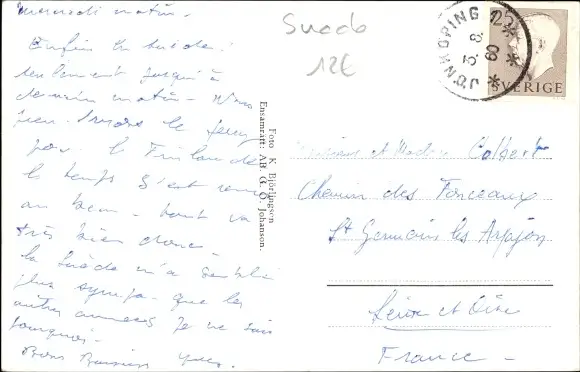 mercredi matin.
Enfin en Suède!
seulement jusqu'à
demain matin -
le
pas. la Finlande
le temps s'est remis
au beau - tout va
très bien donc -
la Suède m'a semblé
plus sympa. que les
autres années je ne sais
pourquoi -
Bons Baisers Yves.
Foto K. Björlingson
Ensamrätt: AB. G. O. Johanson.
Suede
12E
JÖNKÖPING 1
3. 8. 60
25
SVERIGE
Monsieur et Madame Colbert
Chemin des Fonceaux
St Germain les Arpajon
Seine et Oise
France -